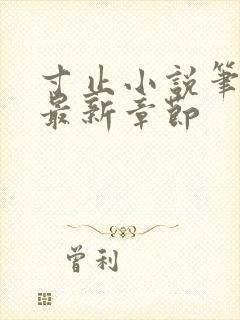 寸止小説筆
最新章節
曾利